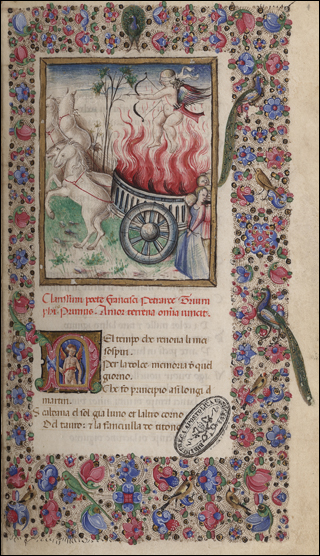 Clarissimi poete Francisci Petrarce Trium
phus Primus. Amor terrena omnia vincit.
Nel tempo che renova li miei
sospiri
Per la dolce memoria di quel
giorno
Che fo principio a si longi
martiri
Scaldava il sol gia luno et laltro corno
Del tauro: & la fanciulla de titone